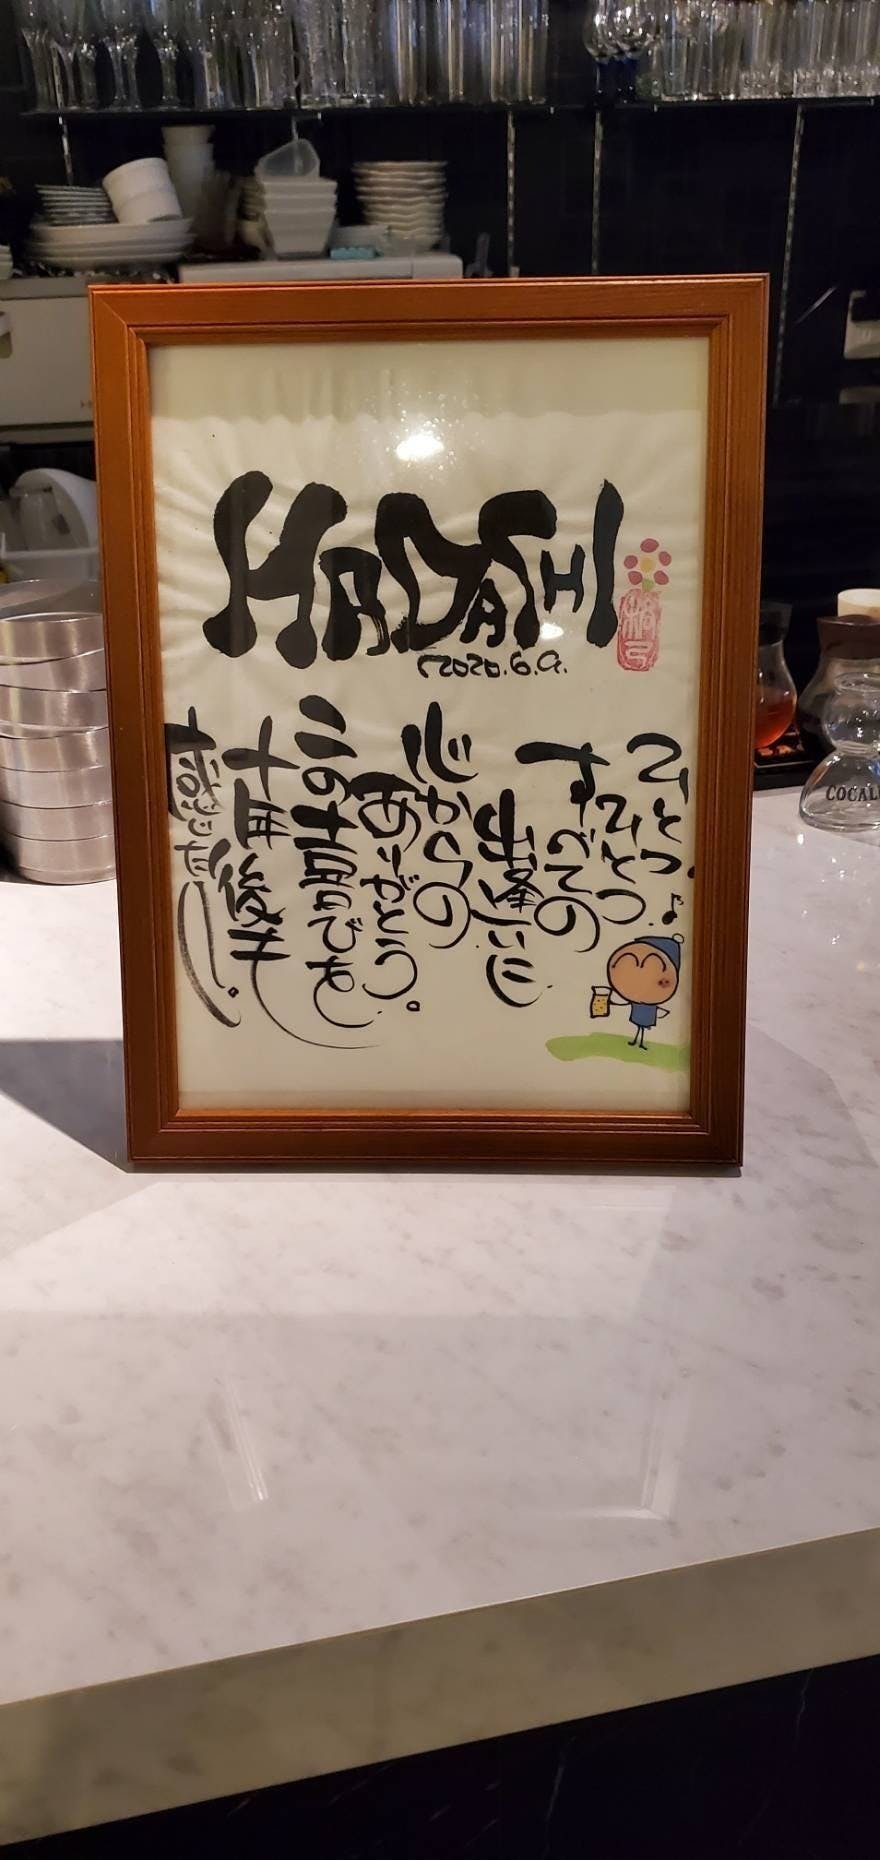 HADASHI
2020.6.9.
ひとつ
ひとつ♪
すべての
出逢いに
心からの
ありがとう。
この場所でも
十年後も
COCAL